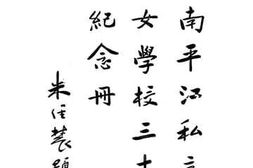 南平江私立
女學校三十
紀念冊
朱經農題